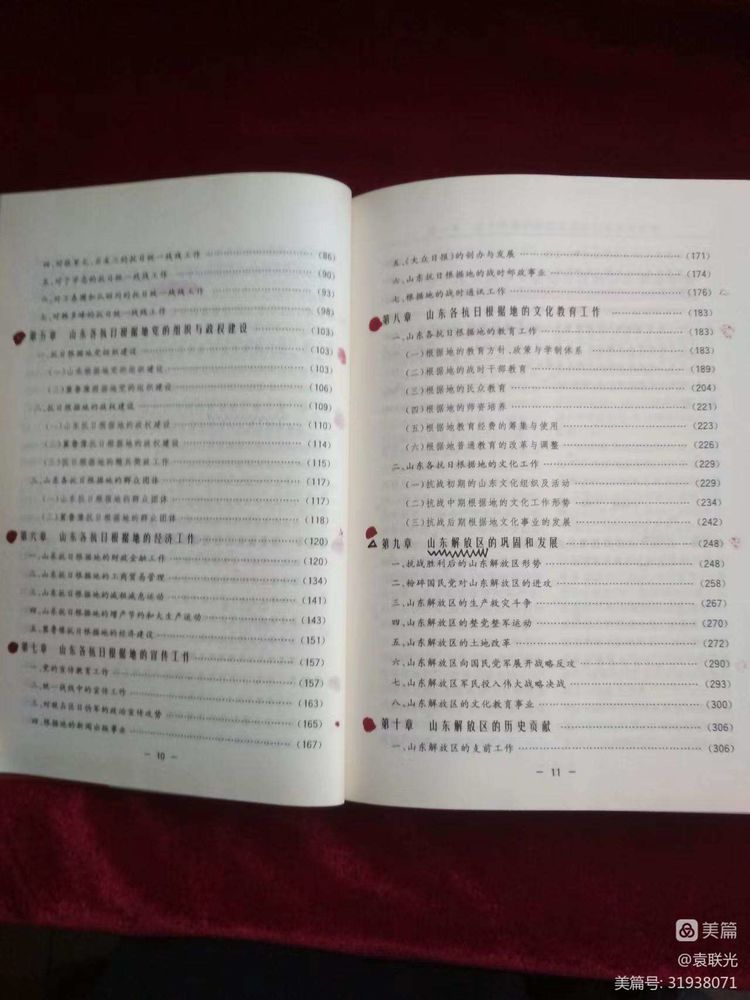 四、对张里元、石友三的抗日统一战线工作 (86)
五、对于学忠的抗日统一战线工作 (90)
六、对万春圃和丛树珂的抗日统一战线工作 (93)
七、对 的抗日统一战线工作 (98)
第五章 山东各抗日根据地党的组织与政权建设 (103)
一、抗日根据地党组织建设 (103)
(一)山东抗日根据地党的组织建设 (103)
(二)冀鲁豫根据地党的组织建设 (106)
二、抗日根据地的政权建设 (109)
(一)山东抗日根据地的政权建设 (110)
(二)冀鲁豫抗日根据地的政权建设 (114)
(三)抗日根据地的精兵简政工作 (115)
三、山东各抗日根据地的群众团体 (117)
(一)山东抗日根据地的群众团体 (117)
(二)冀鲁豫抗日根据地的群众团体 (118)
第六章 山东各抗日根据地的经济工作 (120)
一、山东抗日根据地的财政金融工作 (120)
二、山东抗日根据地的工商贸易管理 (134)
三、山东抗日根据地的减租减息运动 (141)
四、山东抗日根据地的增产节约和大生产运动 (143)
五、冀鲁豫抗日根据地的经济建设 (151)
第七章 山东各抗日根据地的宣传工作 (157)
一、党的宣传教育工作 (157)
二、统一战线中的宣传工作 (163)
三、对敌占区日伪军的政治宣传攻势 (165)
四、根据地的新闻出版事业 (167)
- 10 -
五、《大众日报》的创办与发展 (171)
六、山东抗日根据地的战时邮政事业 (174)
七、根据地的战时通讯工作 (176)
第八章 山东各抗日根据地的文化教育工作 (183)
一、山东各抗日根据地的教育工作 (183)
(一)根据地的教育方针、政策与学制体系 (183)
(二)根据地的战时干部教育 (189)
(三)根据地的民众教育 (204)
(四)根据地的师资培养 (221)
(五)根据地教育经费的筹集与使用 (223)
(六)根据地普通教育的改革与调整 (226)
二、山东各抗日根据地的文化工作 (229)
(一)抗战初期的山东文化组织及活动 (229)
(二)抗战中期根据地的文化工作形势 (234)
(三)抗战后期根据地文化事业的发展 (242)
第九章 山东解放区的巩固和发展 (248)
一、抗战胜利后的山东解放区形势 (248)
二、粉碎国民党对山东解放区的进攻 (258)
三、山东解放区的生产救灾斗争 (267)
四、山东解放区的整党整军运动 (270)
五、山东解放区的土地改革 (272)
六、山东解放区向国民党军展开战略反攻 (290)
七、山东解放区军民投入伟大战略决战 (293)
八、山东解放区的文化教育事业 (300)
第十章 山东解放区的历史贡献 (306)
一、山东解放区的支前工作 (306)
- 11 -
美篇
@袁联光
美篇号: 31938071